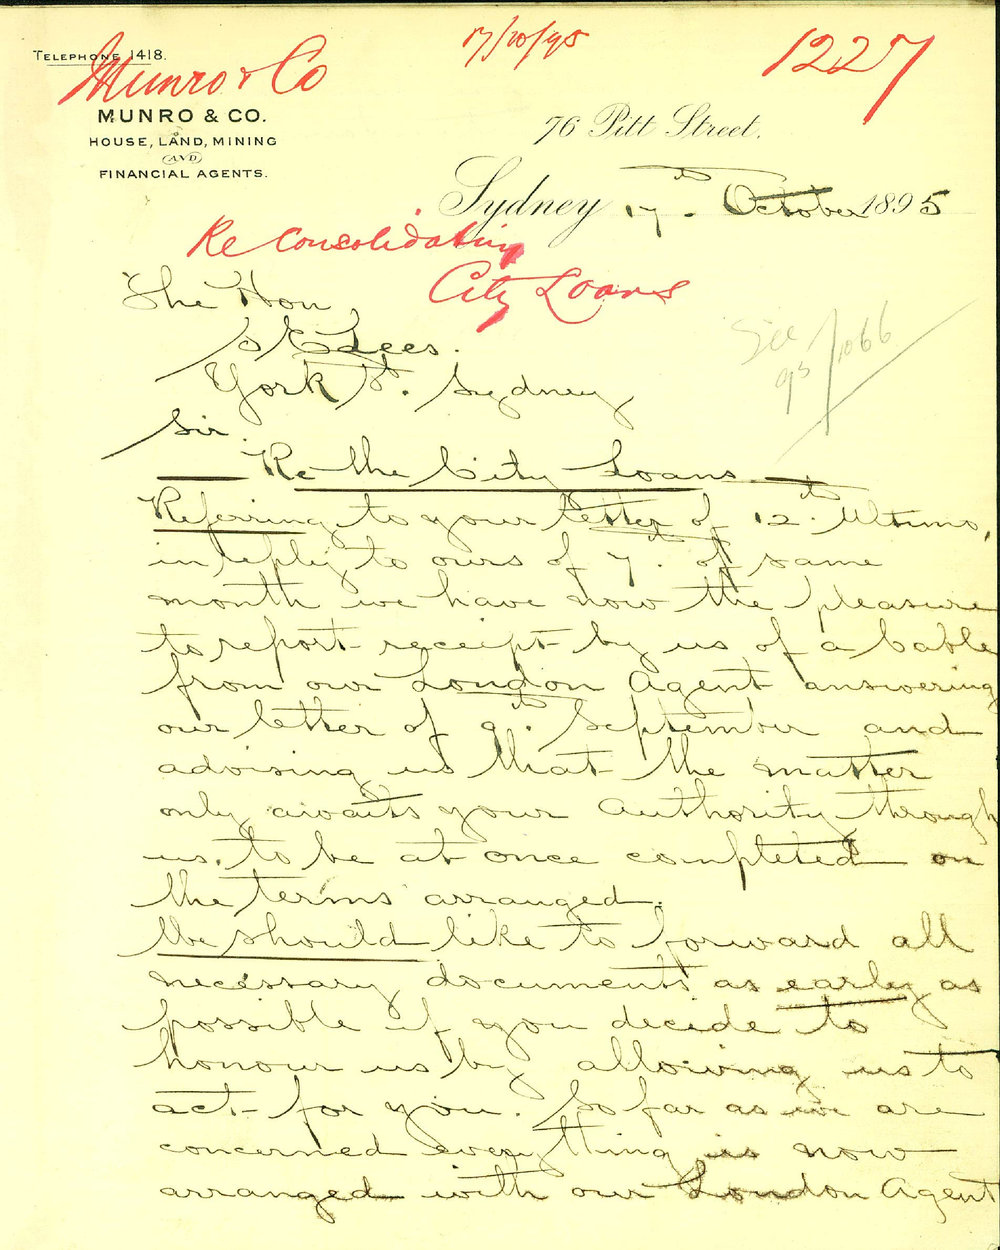 TELEPHONE 1418.
Munro & Co
17/10/95
1227
MUNRO & CO.
HOUSE, LAND, MINING
AND
FINANCIAL AGENTS.
76 Pitt Street.
Sydney 17th October 1895
Re Consolidating
City Loans
The Hon
S E Lees.
York St. Sydney
See
95/1066
Sir.
Re the City Loans
Referring to your letter of 12th Ultimo,
in reply to ours of 7th of same
month we have now the pleasure
to report receipt by us of a Cable
from our London Agent answering
our letter of 9th September and
advising us that the matter
only awaits your Authority through
us, to be at once completed on
the terms arranged.
We should like to forward all
necessary documents as early as
possible if you decide to
honour us by allowing us to
act for you. So far as we are
concerned every thing is now
arranged with our London Agent